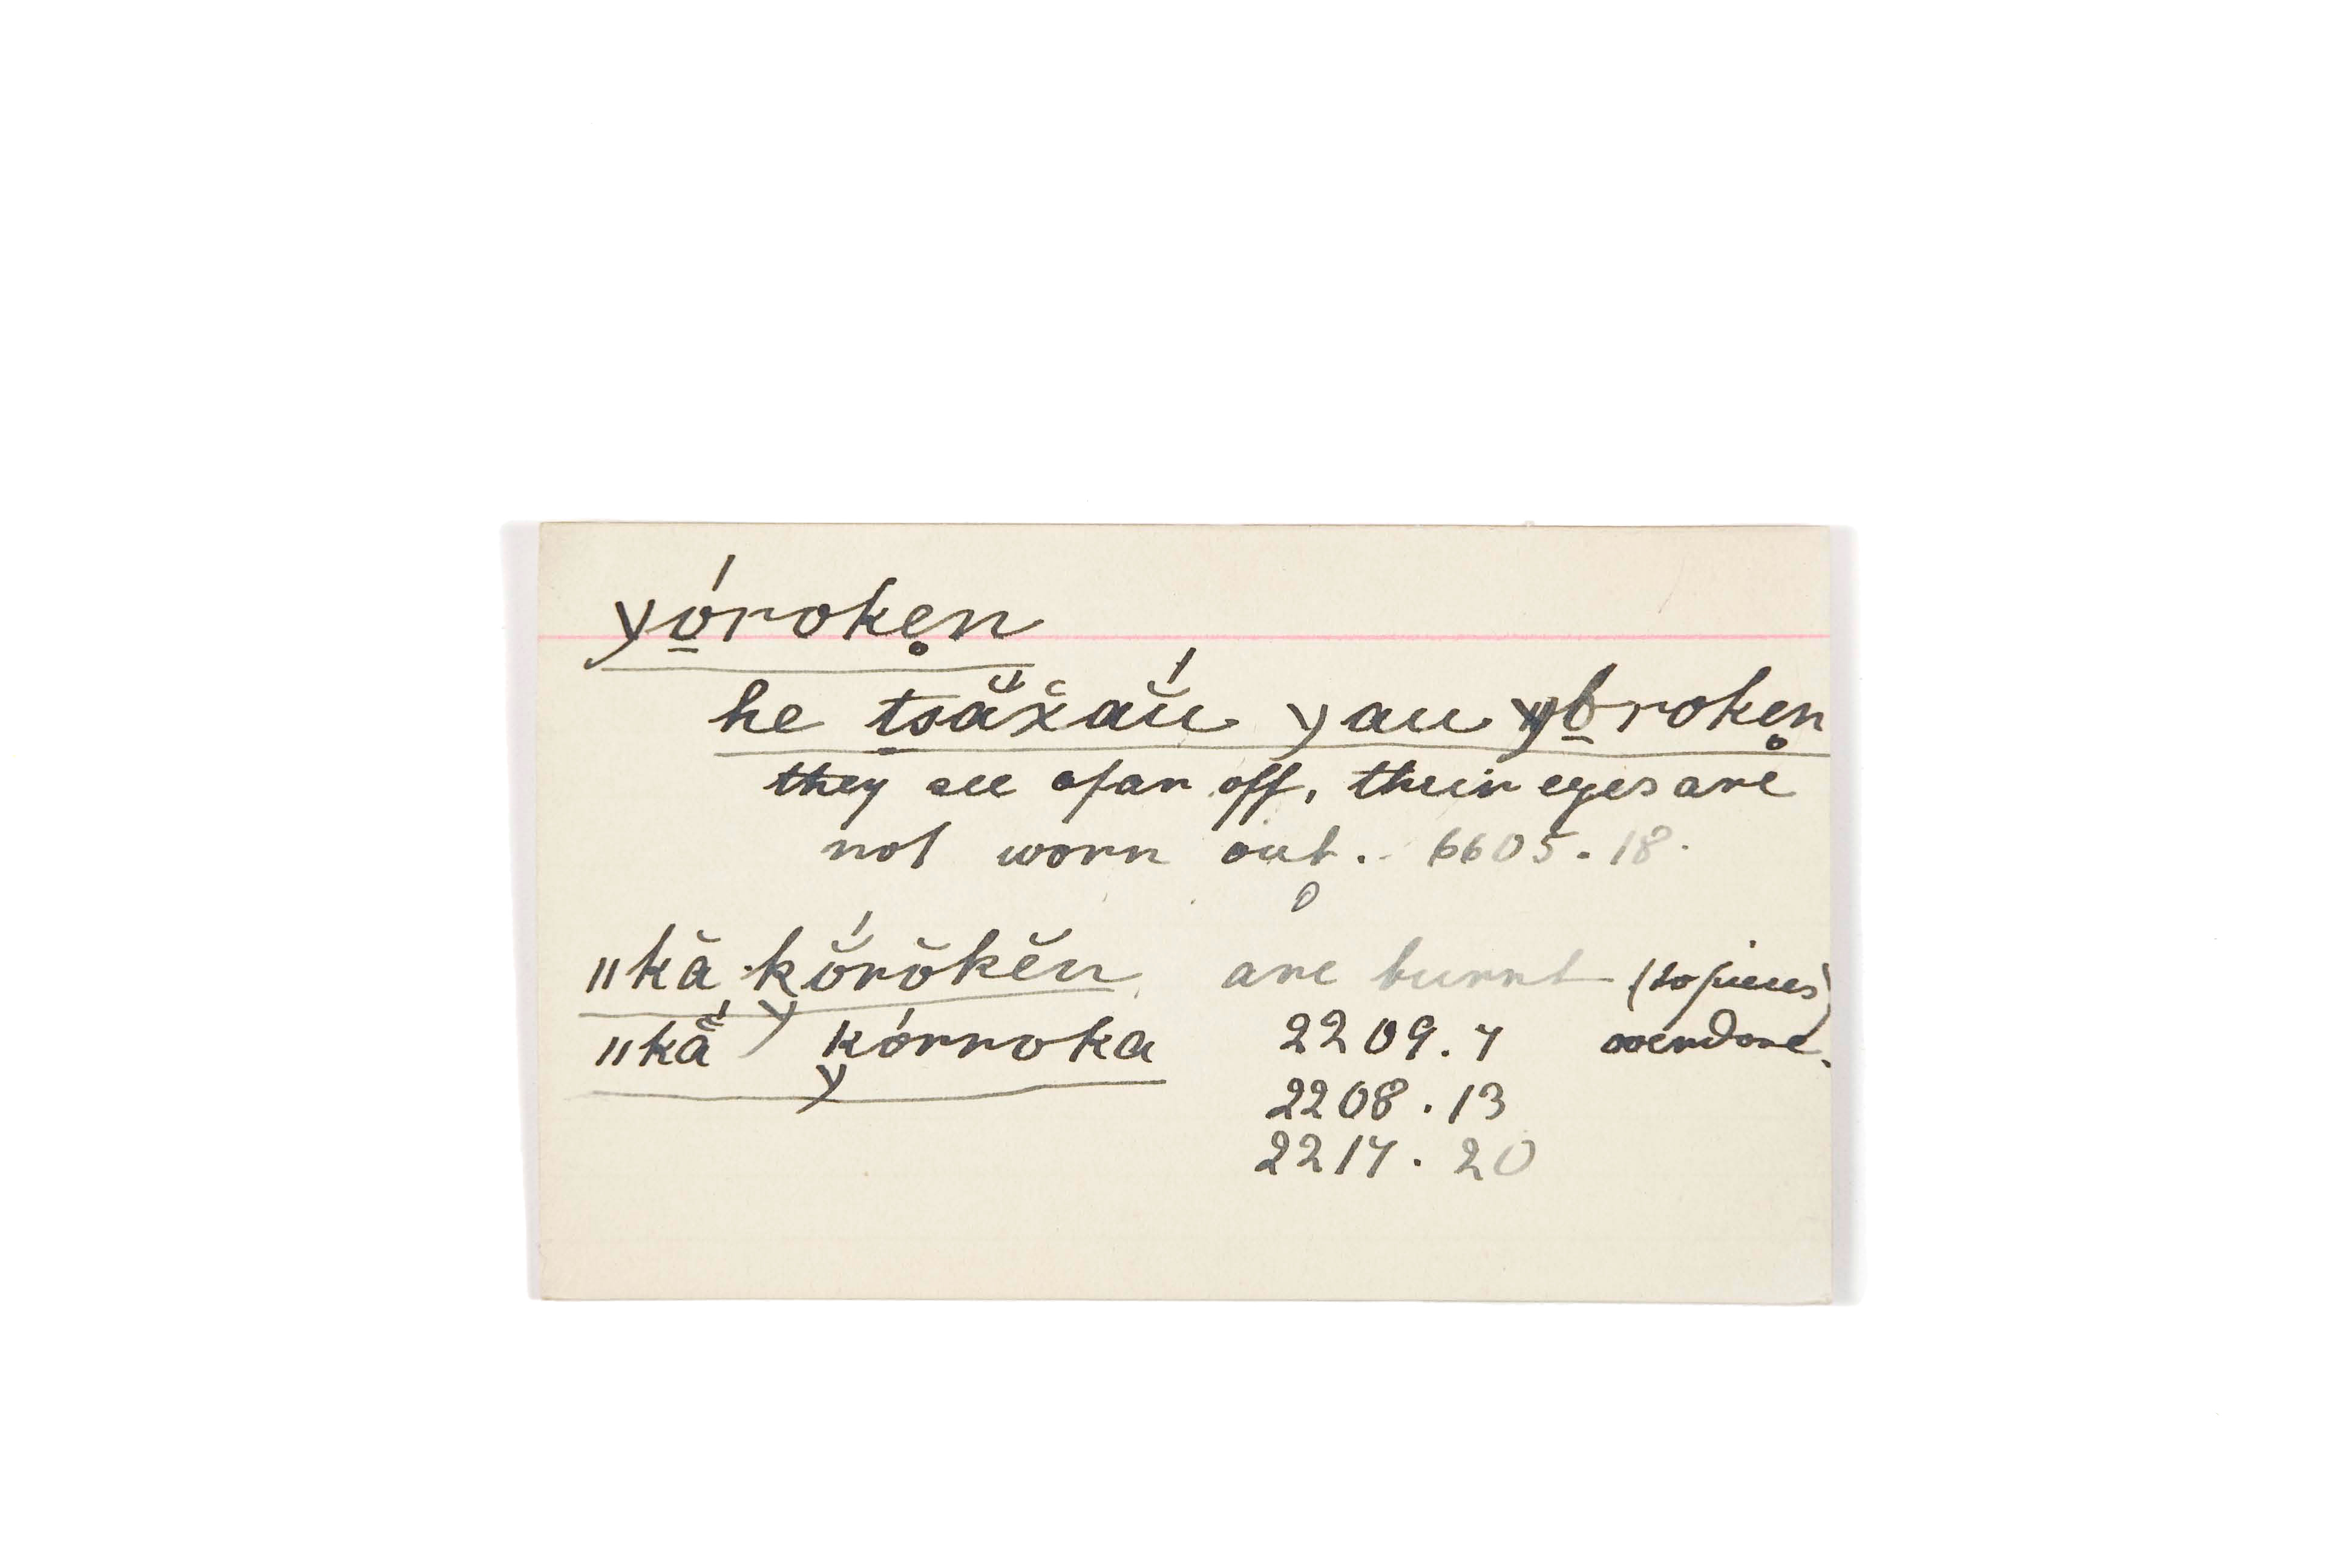 yó̱roke̥n
he ṯsä̆x̆aŭ́ yau yó̱roke̥n
they see afar off, their eyes are
not worn out. 6605.18.
ǁkă kŏ́rŏkĕn are burnt (to pieces)
ǁkă̈́ kórroka 2209.7 overdone.
2208.13
2217.20